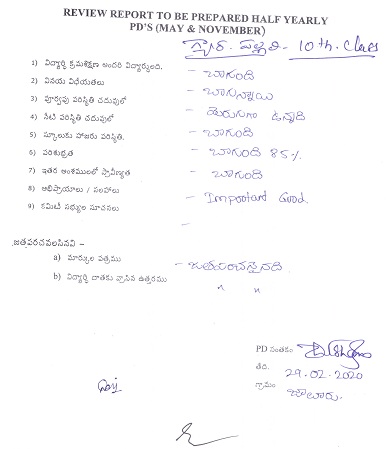 REVIEW REPORT TO BE PREPARED HALF YEARLY
PD'S (MAY & NOVEMBER)
పల్లవి - 10th. Class
1) విద్యార్థి క్రమశిక్షణ అందరి విద్యార్థులది. - బాగుంది
2) వినయ విధేయతలు - బాగున్నాయి
3) పూర్వపు పరిస్థితి చదువులో - మెరుగుగా ఉన్నది
4) నేటి పరిస్థితి చదువులో - బాగుంది
5) స్కూలుకు హాజరు పరిస్థితి. - బాగుంది 85%
6) పరిశుభ్రత - బాగుంది
7) ఇతర అంశములలో ప్రావీణ్యత
8) అభిప్రాయాలు / సలహాలు - Important Good.
9) కమిటీ సభ్యుల సూచనలు -
జత్రపరచవలసినవి –
a) మార్కుల పత్రము - జతపరచనైనది
b) విద్యార్థి దాతకు వ్రాసిన ఉత్తరము " "
PD సంతకం
తేది. 29.02.2020
గ్రామం